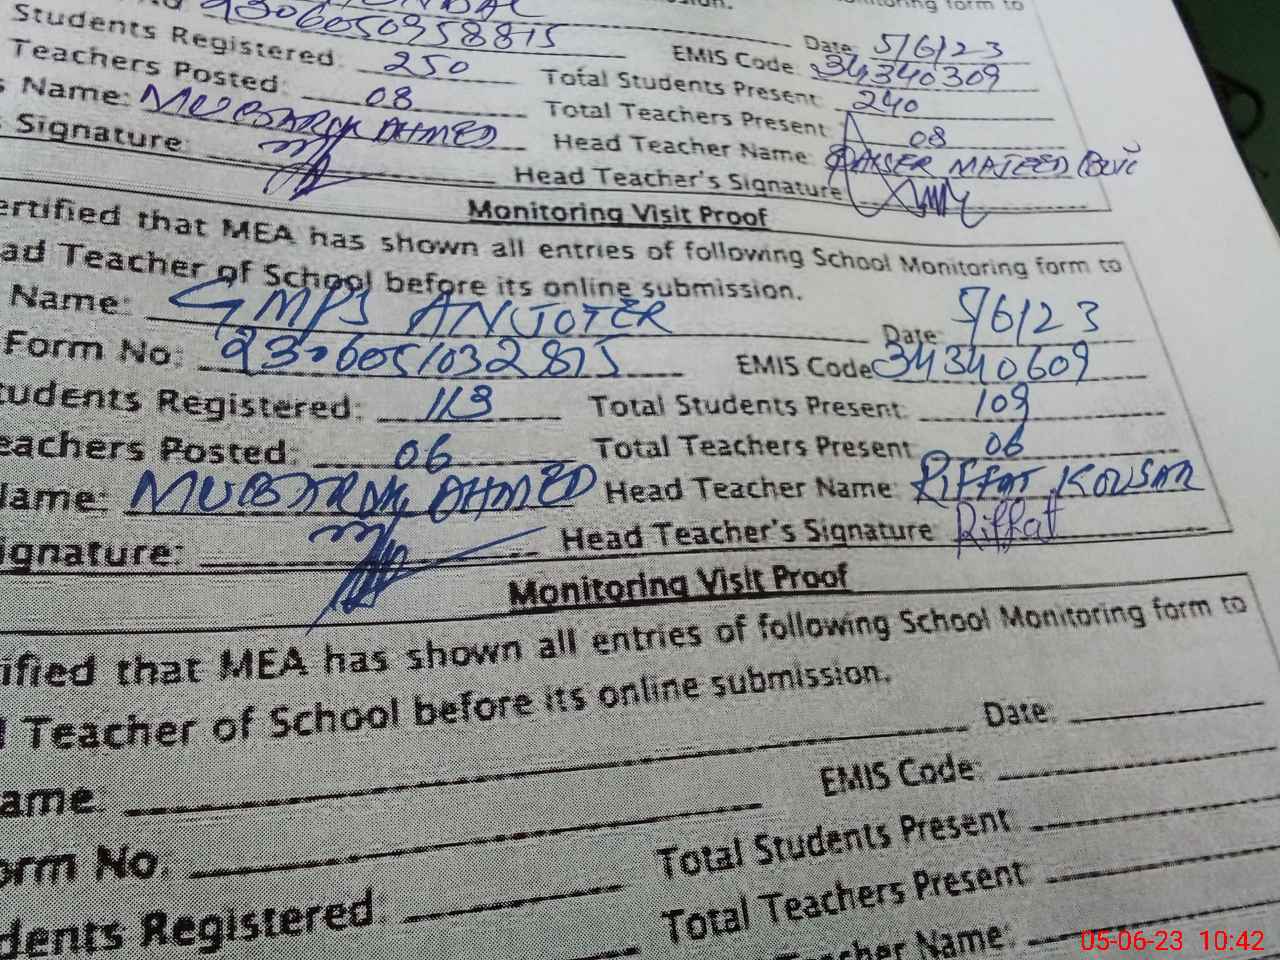 Date: 5/6/23
2306050958815 EMIS Code: 34340309
Students Registered: 250 Total Students Present: 240
Teachers Posted: 08 Total Teachers Present: 08
Name: MUBARAK AHMED Head Teacher Name: MAJEED
Signature: Head Teacher's Signature
Monitoring Visit Proof
ertified that MEA has shown all entries of following School Monitoring form to
ad Teacher of School before its online submission.
Name: GMPS ANJOTER Date: 5/6/23
Form No: 2306051032815 EMIS Code 34340609
tudents Registered: 113 Total Students Present: 109
eachers Posted: 06 Total Teachers Present: 06
Name: MUBARAK AHMED Head Teacher Name: RIFFAT KOUSAR
ignature: Head Teacher's Signature Riffat
Monitoring Visit Proof
ified that MEA has shown all entries of following School Monitoring form to
Teacher of School before its online submission.
ame: Date:
orm No: EMIS Code:
dents Registered: Total Students Present:
Total Teachers Present:
Teacher Name:
05-06-23 10:42